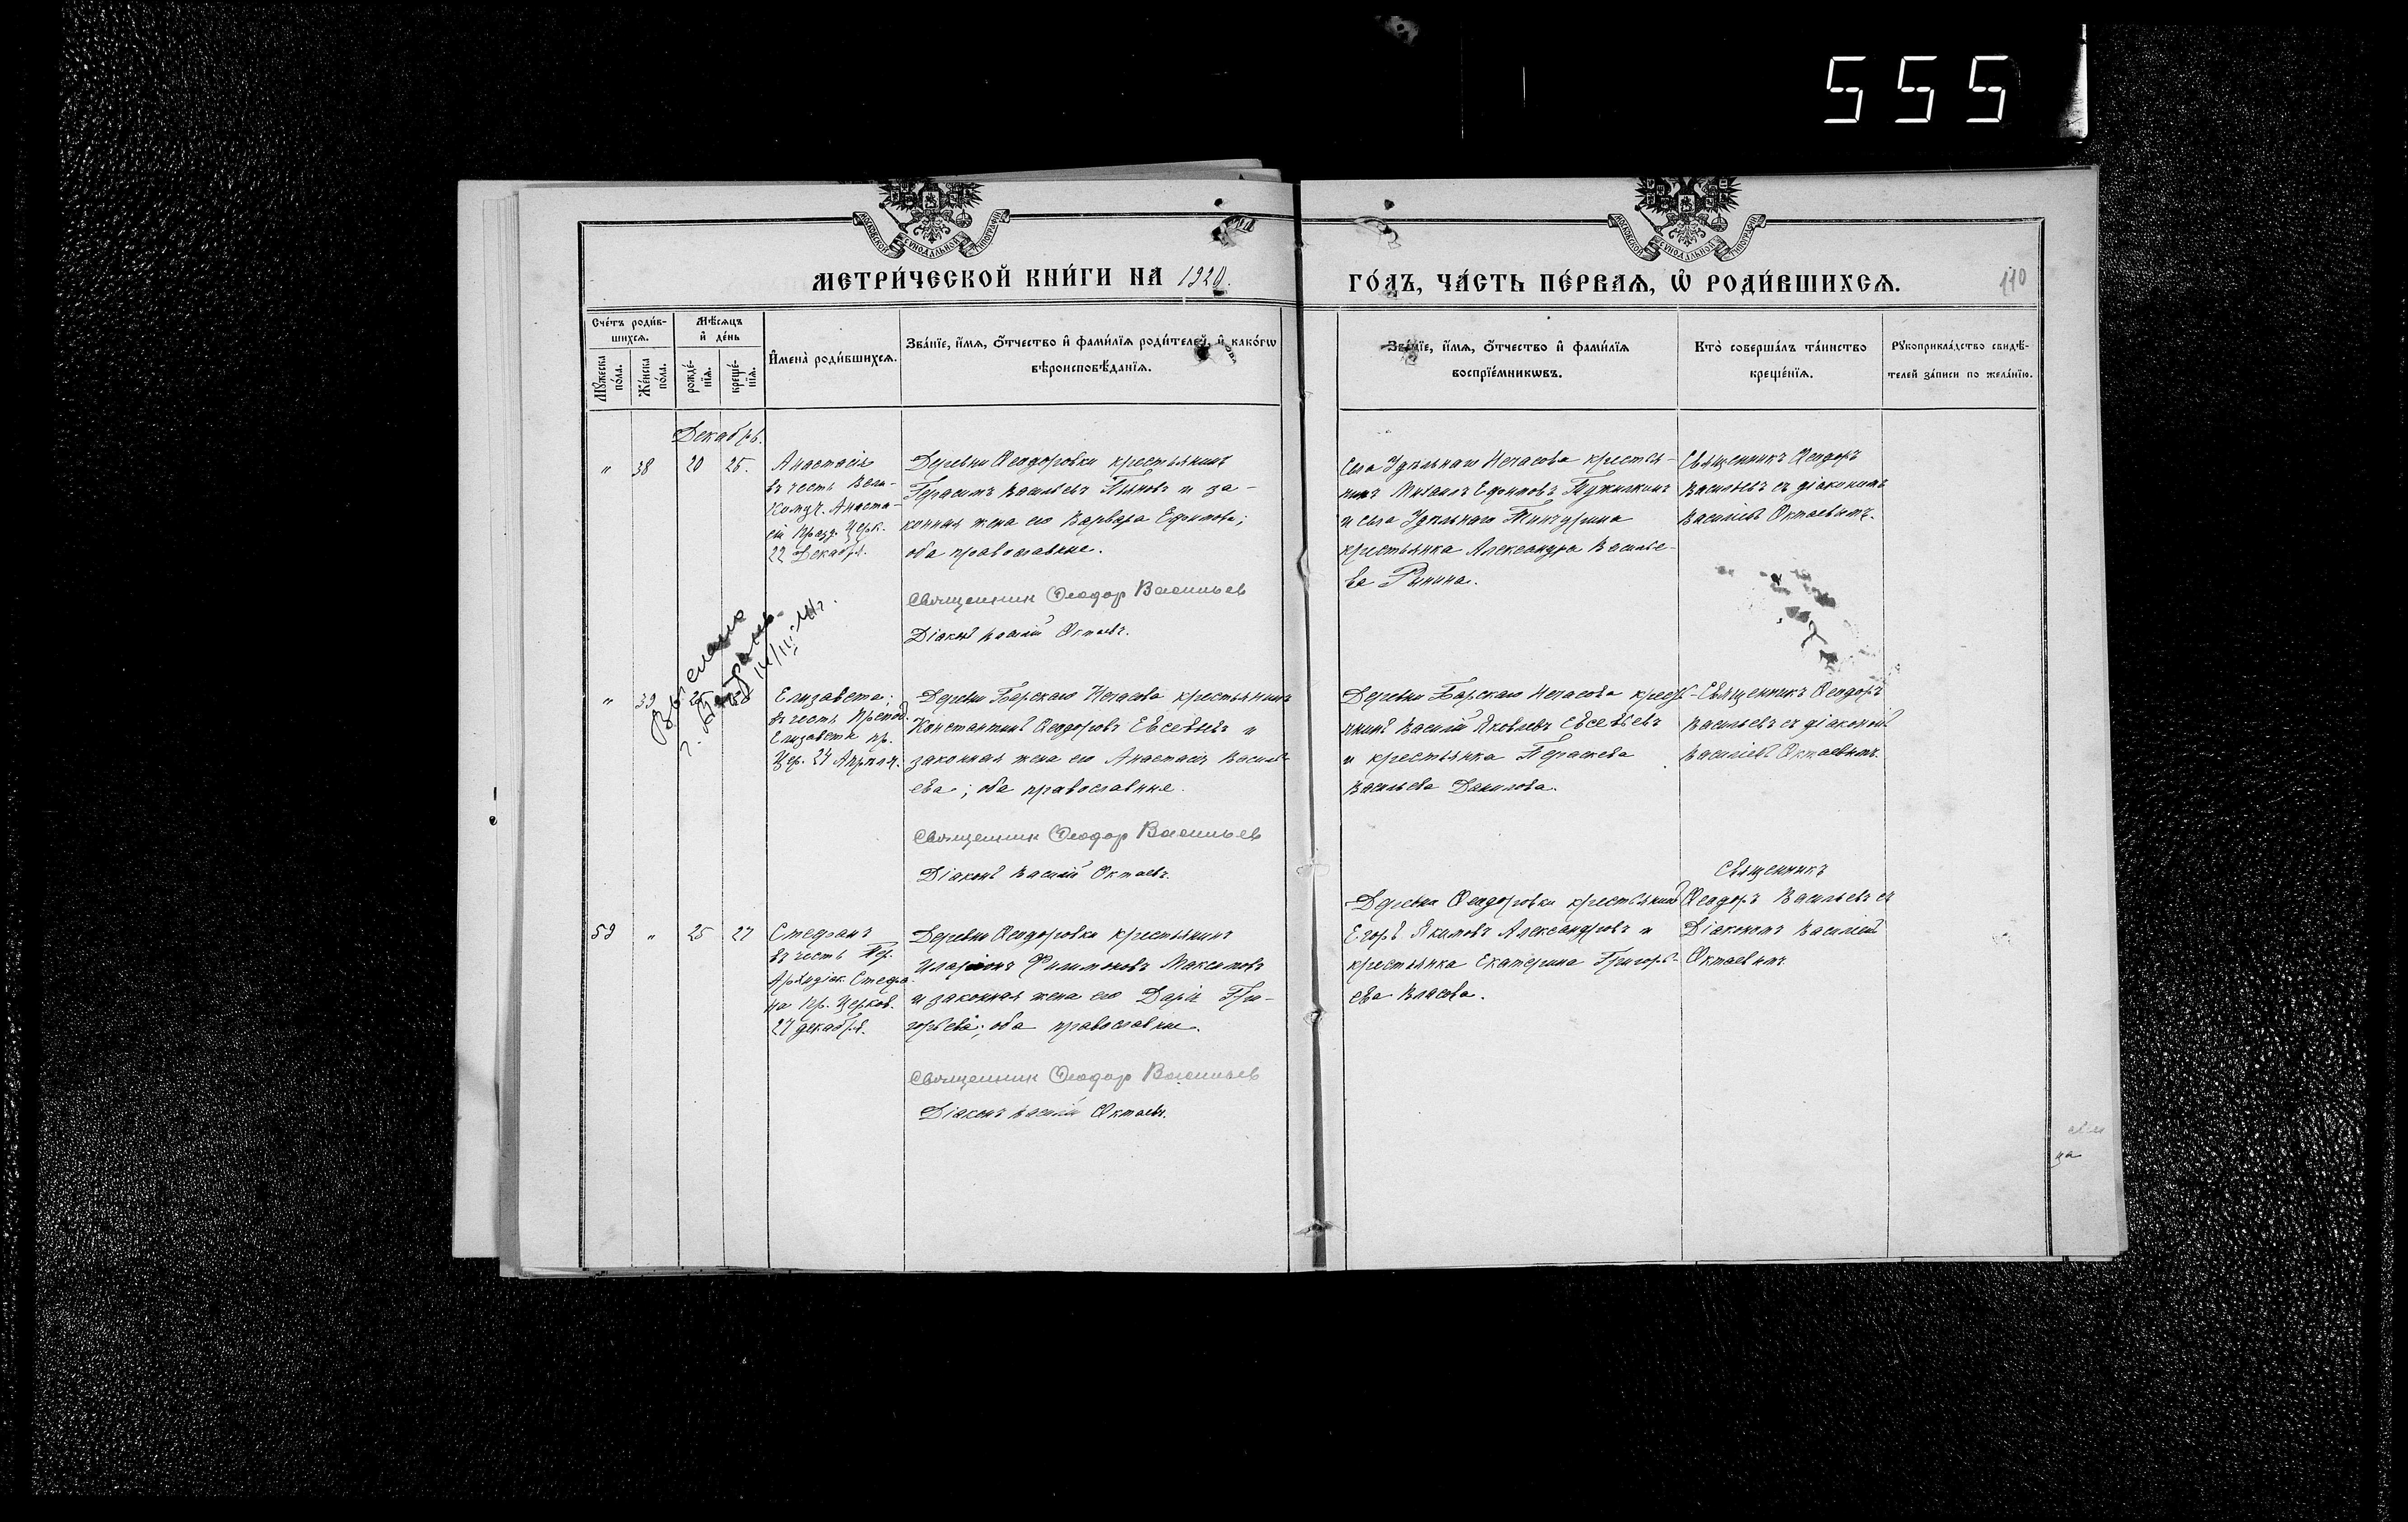 555
МОСКОВСКОЙ СѴНОДАЛЬНОЙ ТИПОГРАФІИ
МОСКОВСКОЙ СѴНОДАЛЬНОЙ ТИПОГРАФІИ
МЕТРИ́ЧЕСКОЙ КНИ́ГИ НА 1920.
ГО́ДЪ, ЧА́СТЬ ПЕ́РВАѦ, Ѡ҆ РОДИ́ВШИХСѦ.
110
Сче́тъ роди́в-
шихсѧ.
Мꙋ́жеска
по́ла.
Же́нска
по́ла.
Мѣ́сѧцъ
и҆ де́нь
рожде́-
нїѧ.
креще́-
нїѧ.
И҆мена̀ роди́вшихсѧ.
Зва́нїе, и҆́мѧ, ѻ҆́тчество и҆ фами́лїѧ роди́телей, и҆ како́гѡ
вѣроисповѣ́данїѧ.
Зва́нїе, и҆́мѧ, ѻ҆́тчество и҆ фами́лїѧ
воспрїе́мникѡвъ.
Кто̀ соверша́лъ та́инство
креще́нїѧ.
Рꙋкоприкла́дство свидѣ́-
телей за́писи по жела́нїю.
Декабрь.
" 38 20 25.
Анастасія
въ честь Вели-
комуч. Анаста-
сіи празд. Церк.
22 Декабря.
Деревни Ѳеодоровки крестьянинъ
Герасимъ Васильевъ Пьяновъ и за-
конная жена его Варвара Ефимова;
оба православные.
Священник Ѳеодор Васильев
Діаконъ Василій Октаевъ.
Села Удѣльнаго Нечасова крестья-
нинъ Михаилъ Ефимовъ Тужилкинъ
и села Удѣльнаго Тинчурина
крестьянка Александра Василье-
ва Рынина.
Священникъ Ѳеодоръ
Васильевъ съ діакономъ
Василіемъ Октаевымъ.
" 39 25
Елизавета;
въ честь Препод.
Елизаветы пр.
Цер. 24 Апрѣля.
Деревни Барскаго Нечасова крестьянинъ
Константинъ Ѳеодоровъ Евсевьевъ и
законная жена его Анастасія Василь-
ева; оба православные.
Священник Ѳеодор Васильев
Діаконъ Василій Октаевъ.
Деревни Барскаго Нечасова кресть-
янинъ Василій Яковлевъ Евсевьевъ
и крестьянка Параскева
Васильева Данилова.
Священникъ Ѳеодоръ
Васильевъ съ діакономъ
Василіемъ Октаевымъ.
59 " 25 27
Стефанъ
въ честь Пер.
Архидіак. Стефа-
на пр. Церков.
27 декабря.
Деревни Ѳеодоровки крестьянинъ
Иларіонъ Филимоновъ Максимовъ
и законная жена его Дарія Гри-
горьева; оба православные.
Священник Ѳеодор Васильев
Діаконъ Василій Октаевъ.
Деревни Ѳеодоровки крестьянинъ
Егоръ Якимовъ Александровъ и
крестьянка Екатерина Григорь-
ева Власова.
Священникъ
Ѳеодоръ Васильевъ съ
Діакономъ Василіемъ
Октаевымъ.